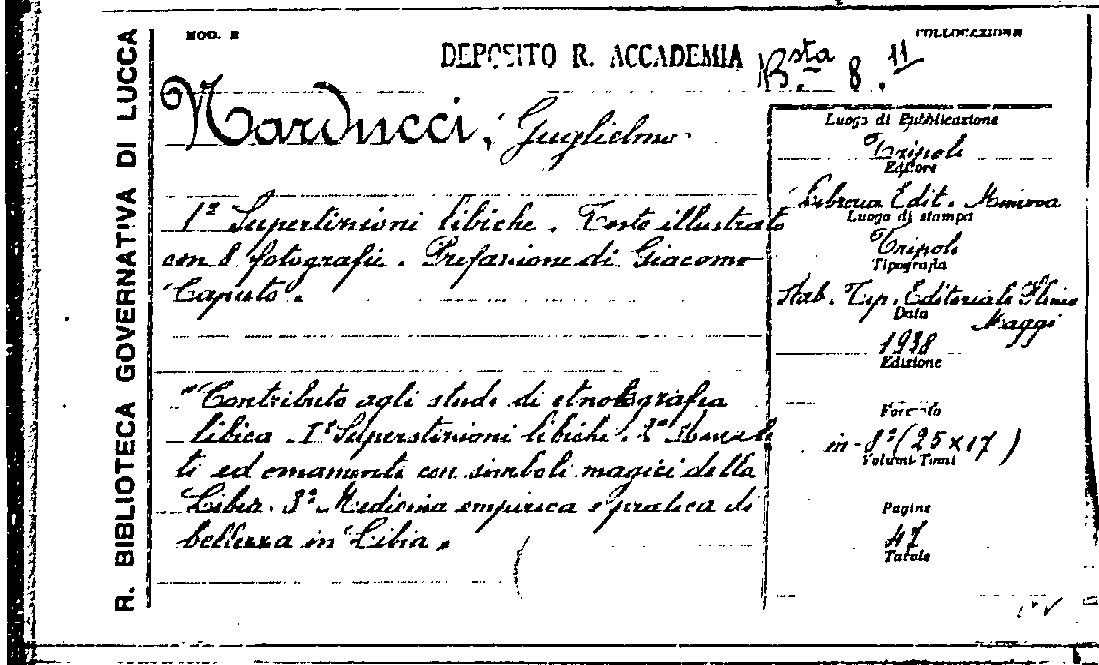 R. BIBLIOTECA GOVERNATIVA DI LUCCA
MOD. E
COLLOCAZIONE
DEPOSITO R. ACCADEMIA
B.sta 8. 11
Narducci, Guglielmo
1º Superstizioni libiche. Testo illustrato
con 8 fotografie. Prefazione di Giacomo
Caputo.
"Contributo agli studi di etnografia
libica. 1º Superstizioni libiche. 2º
ti ed ornamenti con simboli magici della
Libia. 3º Medicina empirica e pratica di
bellezza in Libia"
Luogo di Pubblicazione
Tripoli
Editore
Libreria Edit. Minerva
Luogo di stampa
Tripoli
Tipografia
Stab. Tip. Editoriale Plinio
Maggi
Data
1938
Edizione
Formato
in-8º (25x17)
Volumi Tomi
Pagine
47
Tavole